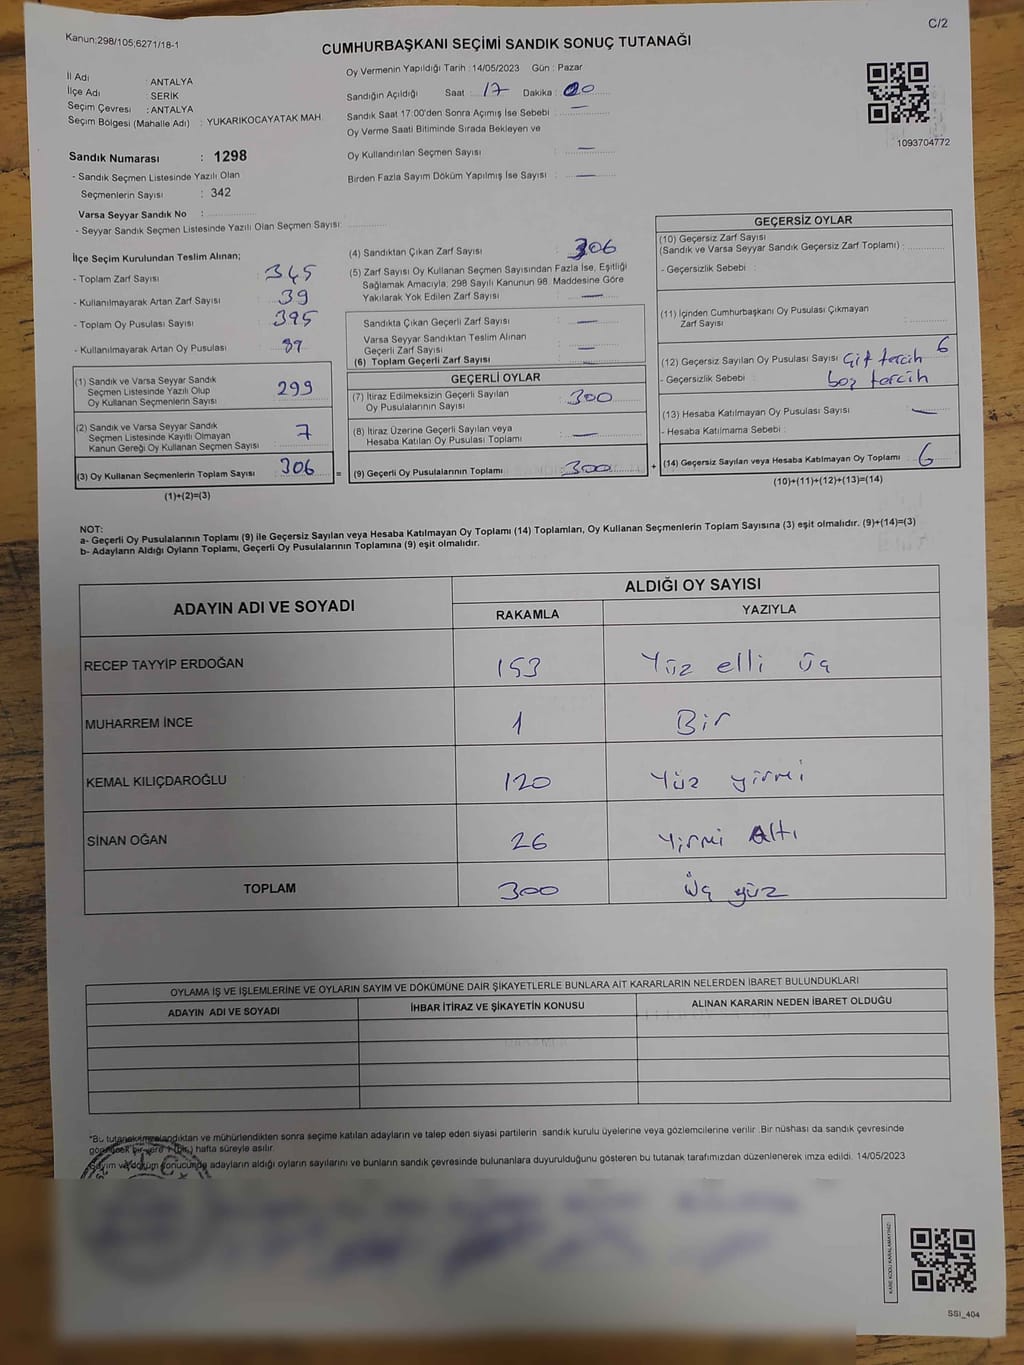 Kanun:298/105;6271/18-1
C/2
CUMHURBAŞKANI SEÇİMİ SANDIK SONUÇ TUTANAĞI
İl Adı : ANTALYA
İlçe Adı : SERİK
Seçim Çevresi : ANTALYA
Seçim Bölgesi (Mahalle Adı) : YUKARIKOCAYATAK MAH.
Sandık Numarası : 1298
- Sandık Seçmen Listesinde Yazılı Olan
Seçmenlerin Sayısı : 342
Varsa Seyyar Sandık No :
- Seyyar Sandık Seçmen Listesinde Yazılı Olan Seçmen Sayısı:
Oy Vermenin Yapıldığı Tarih : 14/05/2023 Gün : Pazar
Sandığın Açıldığı Saat : 17 Dakika : 00
Sandık Saat 17:00'den Sonra Açımış İse Sebebi : —
Oy Verme Saati Bitiminde Sırada Bekleyen ve
Oy Kullandırılan Seçmen Sayısı : —
Birden Fazla Sayım Döküm Yapılmış İse Sayısı : —
1093704772
İlçe Seçim Kurulundan Teslim Alınan;
- Toplam Zarf Sayısı : 345
- Kullanılmayarak Artan Zarf Sayısı : 39
- Toplam Oy Pusulası Sayısı : 395
- Kullanılmayarak Artan Oy Pusulası : 89
(1) Sandık ve Varsa Seyyar Sandık
Seçmen Listesinde Yazılı Olup
Oy Kullanan Seçmenlerin Sayısı : 299
(2) Sandık ve Varsa Seyyar Sandık
Seçmen Listesinde Kayıtlı Olmayan
Kanun Gereği Oy Kullanan Seçmen Sayısı : 7
(3) Oy Kullanan Seçmenlerin Toplam Sayısı : 306
(1)+(2)=(3)
=
(4) Sandıktan Çıkan Zarf Sayısı : 306
(5) Zarf Sayısı Oy Kullanan Seçmen Sayısından Fazla İse, Eşitliği
Sağlamak Amacıyla, 298 Sayılı Kanunun 98. Maddesine Göre
Yakılarak Yok Edilen Zarf Sayısı : —
Sandıkta Çıkan Geçerli Zarf Sayısı : —
Varsa Seyyar Sandıktan Teslim Alınan
Geçerli Zarf Sayısı : —
(6) Toplam Geçerli Zarf Sayısı : —
GEÇERLİ OYLAR
(7) İtiraz Edilmeksizin Geçerli Sayılan
Oy Pusulalarının Sayısı : 300
(8) İtiraz Üzerine Geçerli Sayılan veya
Hesaba Katılan Oy Pusulası Toplamı : —
(9) Geçerli Oy Pusulalarının Toplamı : 300
+
GEÇERSİZ OYLAR
(10) Geçersiz Zarf Sayısı
(Sandık ve Varsa Seyyar Sandık Geçersiz Zarf Toplamı) :
- Geçersizlik Sebebi :
(11) İçinden Cumhurbaşkanı Oy Pusulası Çıkmayan
Zarf Sayısı :
(12) Geçersiz Sayılan Oy Pusulası Sayısı : 6
Çift tercih
- Geçersizlik Sebebi : boş tercih
(13) Hesaba Katılmayan Oy Pusulası Sayısı : —
- Hesaba Katılmama Sebebi :
(14) Geçersiz Sayılan veya Hesaba Katılmayan Oy Toplamı : 6
(10)+(11)+(12)+(13)=(14)
NOT:
a- Geçerli Oy Pusulalarının Toplamı (9) ile Geçersiz Sayılan veya Hesaba Katılmayan Oy Toplamı (14) Toplamları, Oy Kullanan Seçmenlerin Toplam Sayısına (3) eşit olmalıdır. (9)+(14)=(3)
b- Adayların Aldığı Oyların Toplamı, Geçerli Oy Pusulalarının Toplamına (9) eşit olmalıdır.
ADAYIN ADI VE SOYADI
ALDIĞI OY SAYISI
RAKAMLA YAZIYLA
RECEP TAYYİP ERDOĞAN 153 Yüz elli üç
MUHARREM İNCE 1 Bir
KEMAL KILIÇDAROĞLU 120 Yüz yirmi
SİNAN OĞAN 26 Yirmi Altı
TOPLAM 300 Üç yüz
OYLAMA İŞ VE İŞLEMLERİNE VE OYLARIN SAYIM VE DÖKÜMÜNE DAİR ŞİKAYETLERLE BUNLARA AİT KARARLARIN NELERDEN İBARET BULUNDUKLARI
ADAYIN ADI VE SOYADI İHBAR İTİRAZ VE ŞİKAYETİN KONUSU ALINAN KARARIN NEDEN İBARET OLDUĞU
*Bu tutanak imzalandıktan ve mühürlendikten sonra seçime katılan adayların ve talep eden siyasi partilerin sandık kurulu üyelerine veya gözlemcilerine verilir .Bir nüshası da sandık çevresinde
görülecek bir yere 1 (bir) hafta süreyle asılır.
Sayım ve döküm sonucunda adayların aldığı oyların sayılarını ve bunların sandık çevresinde bulunanlara duyurulduğunu gösteren bu tutanak tarafımızdan düzenlenerek imza edildi. 14/05/2023
T.C.
KARE KODU KARALAMAYINIZ!
SSİ_404